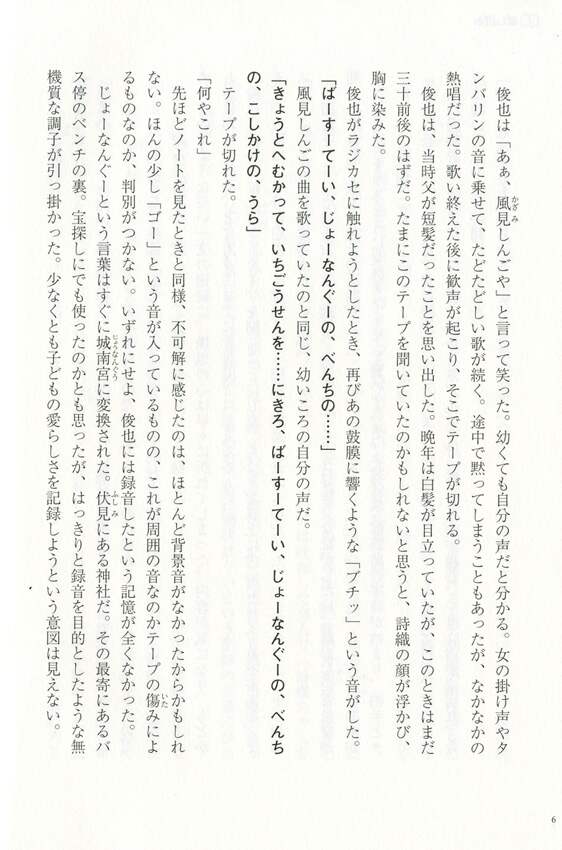 俊也は「あぁ、風見しんごや」と言って笑った。幼くても自分の声だと分かる。女の掛け声やタ
ンバリンの音に乗せて、たどたどしい歌が続く。途中で黙ってしまうこともあったが、なかなかの
熱唱だった。歌い終えた後に歓声が起こり、そこでテープが切れる。
俊也は、当時父が短髪だったことを思い出した。晩年は白髪が目立っていたが、このときはまだ
三十前後のはずだ。たまにこのテープを聞いていたのかもしれないと思うと、詩織の顔が浮かび、
胸に染みた。
俊也がラジカセに触れようとしたとき、再びあの鼓膜に響くような「ブチッ」という音がした。
「ばーすてーい、じょーなんぐーの、べんちの……」
風見しんごの曲を歌っていたのと同じ、幼いころの自分の声だ。
「きょうとへむかって、いちごうせんを……にきろ、ばーすてーい、じょーなんぐーの、べんち
の、こしかけの、うら」
テープが切れた。
「何やこれ」
先ほどノートを見たときと同様、不可解に感じたのは、ほとんど背景音がなかったからかもしれ
ない。ほんの少し「ゴー」という音が入っているものの、これが周囲の音なのかテープの傷みによ
るものなのか、判別がつかない。いずれにせよ、俊也には録音したという記憶が全くなかった。
じょーなんぐーという言葉はすぐに城南宮に変換された。伏見にある神社だ。その最寄にあるバ
ス停のベンチの裏。宝探しにでも使ったのかとも思ったが、はっきりと録音を目的としたような無
機質な調子が引っ掛かった。少なくとも子どもの愛らしさを記録しようという意図は見えない。
6